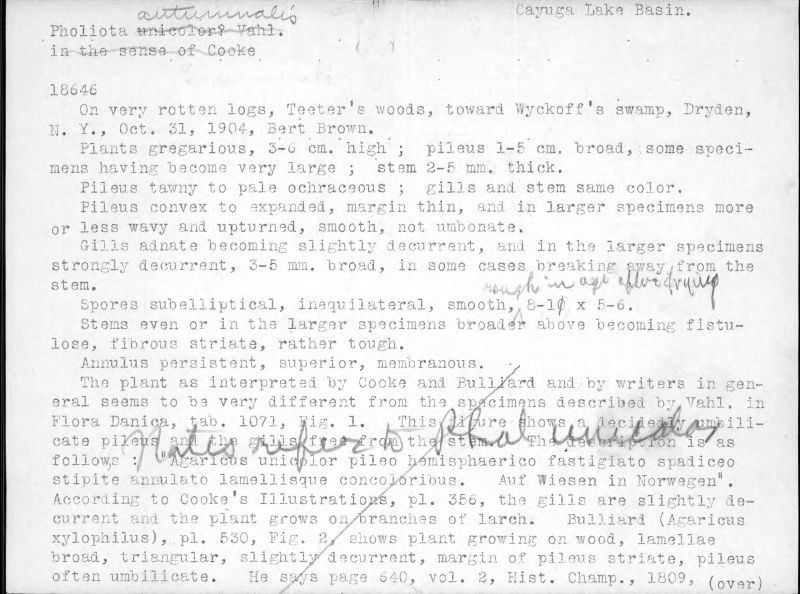 autumnalis
Cayuga Lake Basin.
Pholiota unicolor? Vahl.
in the sense of Cooke ( )
18646
On very rotten logs, Teeter's woods, toward Wyckoff's swamp, Dryden,
N. Y., Oct. 31, 1904, Bert Brown.
Plants gregarious, 3-6 cm. high ; pileus 1-5 cm. broad, some speci-
mens having become very large ; stem 2-5 mm. thick.
Pileus tawny to pale ochraceous ; gills and stem same color.
Pileus convex to expanded, margin thin, and in larger specimens more
or less wavy and upturned, smooth, not umbonate.
Gills adnate becoming slightly decurrent, and in the larger specimens
strongly decurrent, 3-5 mm. broad, in some cases breaking away from the
stem.
rough in age after drying
Spores subelliptical, inequilateral, smooth, 8-10 x 5-6.
Stems even or in the larger specimens broader above becoming fistu-
lose, fibrous striate, rather tough.
Annulus persistent, superior, membranous.
The plant as interpreted by Cooke and Bulliard and by writers in gen-
eral seems to be very different from the specimens described by Vahl. in
Flora Danica, tab. 1071, Fig. 1. This figure shows a decidedly umbili-
cate pileus and the gills free from the stem. The description is as
Notes refer to Phol unicolor
follows : "Agaricus unicolor pileo hemisphaerico fastigiato spadiceo
stipite annulato lamellisque concoloribus. Auf Wiesen in Norwegen".
According to Cooke's Illustrations, pl. 356, the gills are slightly de-
current and the plant grows on branches of larch. Bulliard (Agaricus
xylophilus), pl. 530, Fig. 2, shows plant growing on wood, lamellae
broad, triangular, slightly decurrent, margin of pileus striate, pileus
often umbilicate. He says page 640, vol. 2, Hist. Champ., 1809, (over)